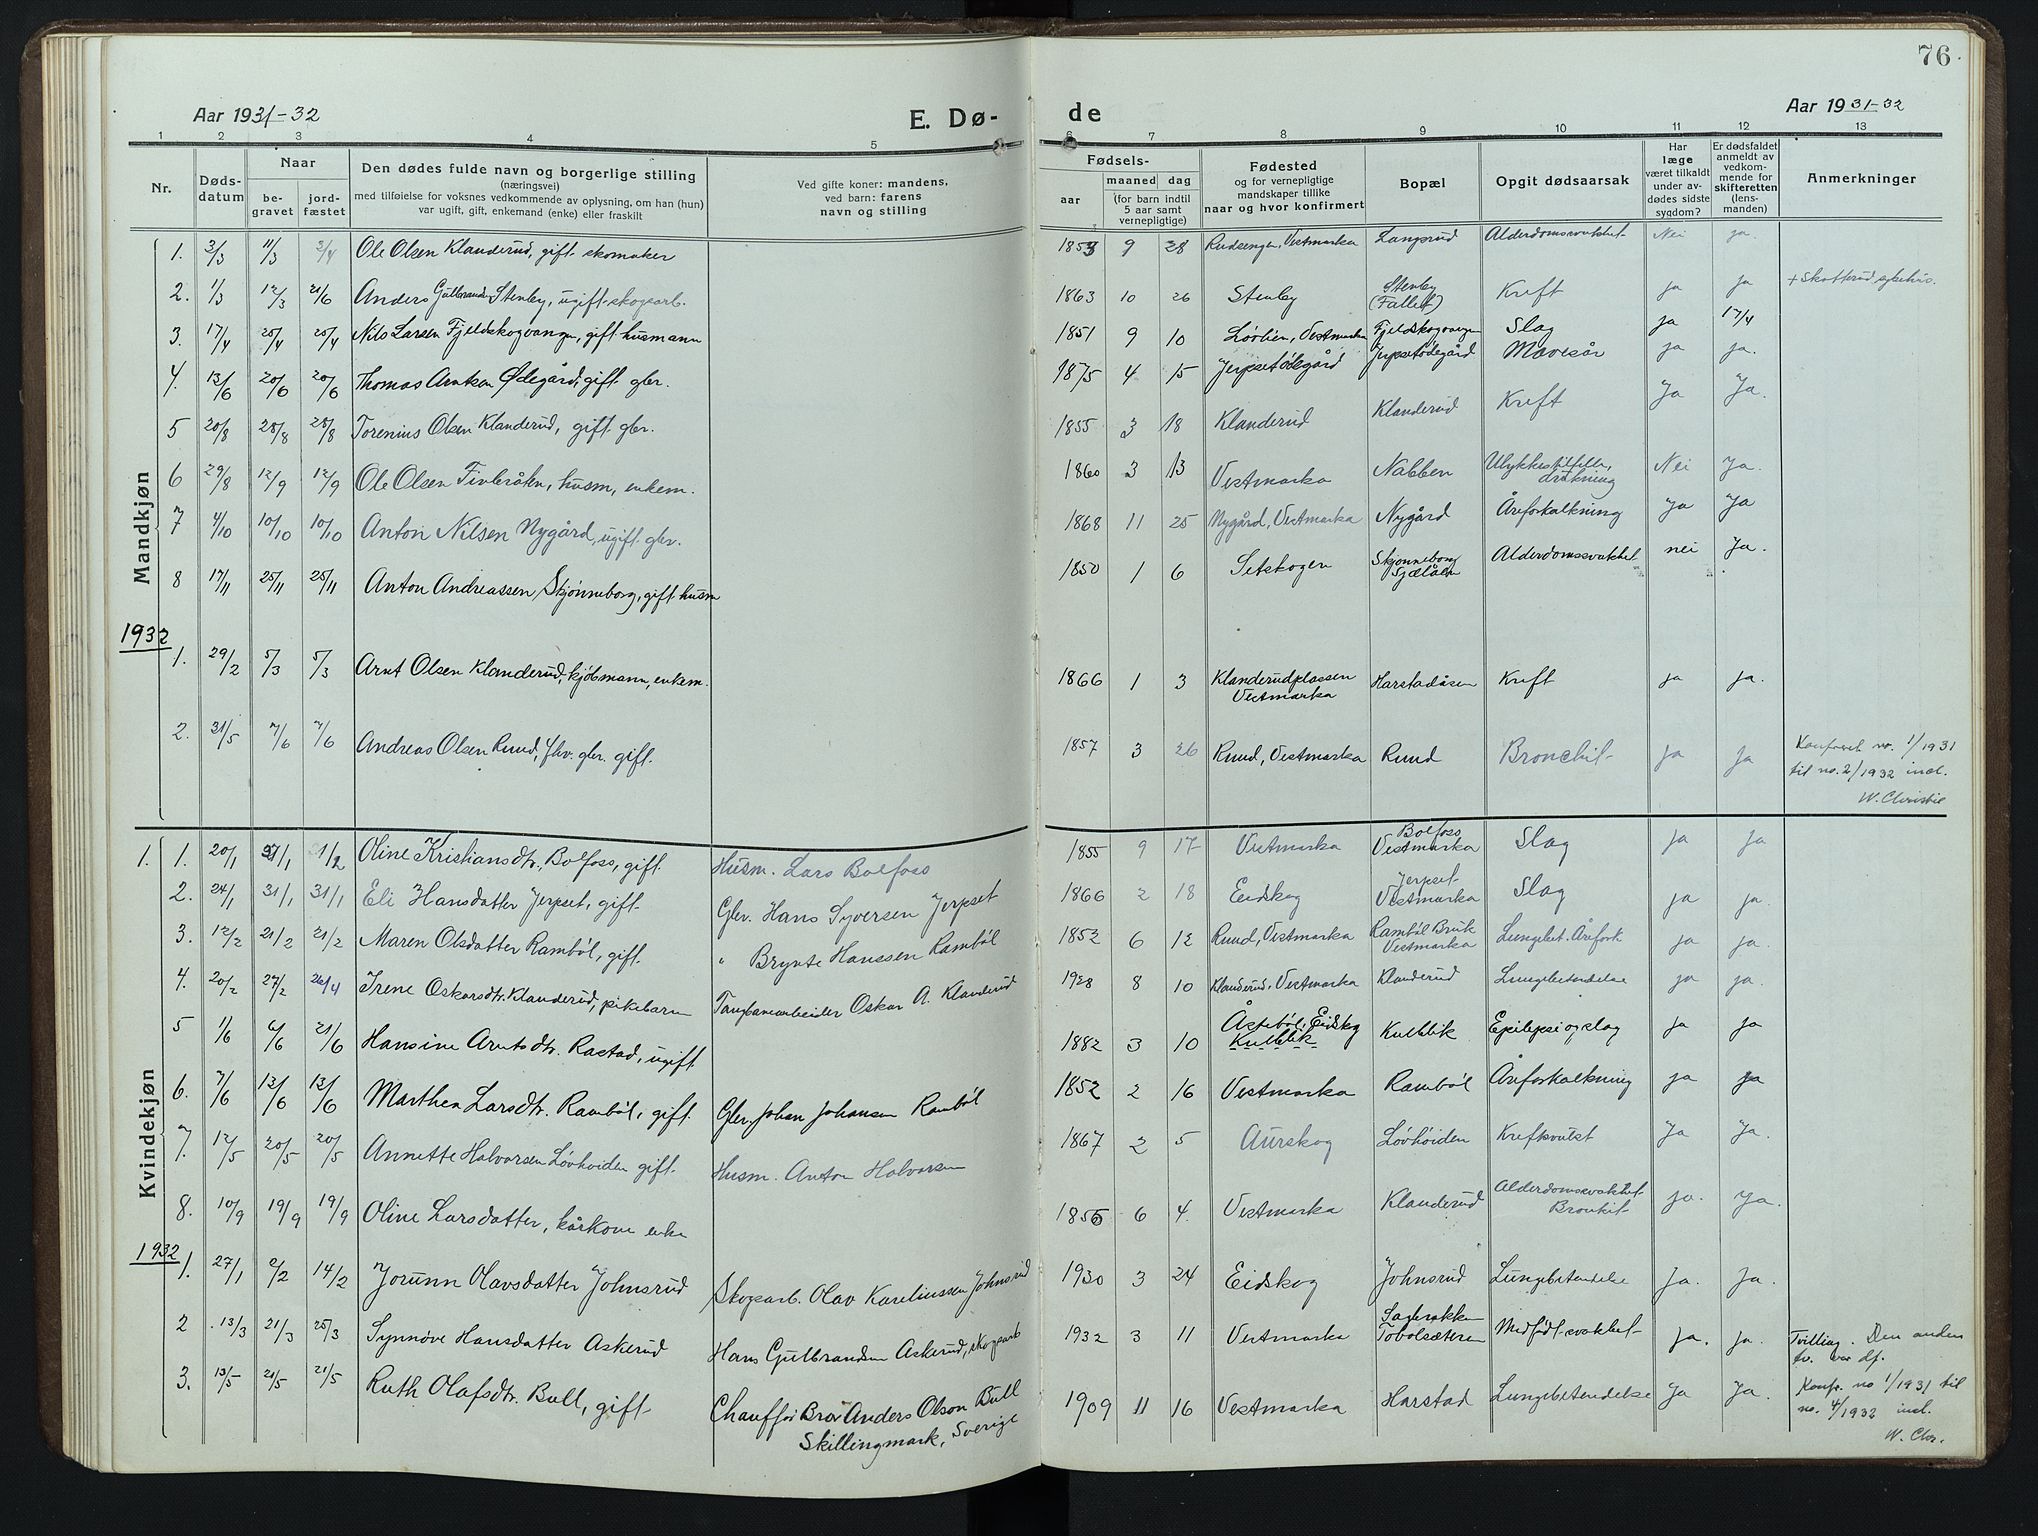 76
Aar 1931-32
E. Dø-
de
Aar 1931-32
1 2 3 4 5 6 7 8 9 10 11 12 13
Nr. Døds-datum Naar be-gravet jord-fæstet
Den dødes fulde navn og borgerlige stilling
(næringsvei)
med tilføielse for voksnes vedkommende av oplysning, om han (hun)
var ugift, gift, enkemand (enke) eller fraskilt
Ved gifte koner: mandens,
ved barn: farens
navn og stilling
Fødsels-
aar maaned dag
(for barn indtil
5 aar samt
vernepligtige)
Fødested
og for vernepligtige
mandskaper tillike
naar og hvor konfirmert
Bopæl
Opgit dødsaarsak
Har
læge
været tilkaldt
under av-
dødes sidste
sygdom?
Er dødsfaldet
anmeldt av
vedkom-
mende for
skifteretten
(lens-
manden)
Anmerkninger
Mandkjøn
1. 3/3 11/3 3/4 Ole Olsen Klanderud, gift. skomaker 1853 9 28 Rudsengen, Vestmarka Langrud Alderdomssvakhet Nei ja.
2. 1/3 12/3 21/6 Anders Gulbrandsen Stenby, ugift skogsarb. 1863 10 26 Stenby Stenby (Fallet) Kreft ja ja + Skotterud sykehus.
3. 17/4 25/4 25/4 Nils Larsen Fjeldskogvangen, gift husmann 1851 9 10 Løvlien, Vestmarka Fjeldskogvangen Slag ja 17/4
4. 13/6 20/6 20/6 Thomas Arntsen Ødegård, gift gbr. 1875 4 15 Jerpsetødegård Jerpsetødegård Mavesår ja ja.
5 20/8 28/8 28/8 Torenius Olsen Klanderud, gift gbr. 1855 3 18 Klanderud Klanderud Kreft Ja Ja.
6 29/8 12/9 12/9 Ole Olsen Finbråten, husm, enkem. 1860 3 13 Vestmarka Nabben Ulykkestilfelle, drukning Nei Ja.
7 4/10 10/10 10/10 Anton Nilsen Nygård, ugift gbr. 1868 11 25 Nygård, Vestmarka Nygård Åreforkalkning Ja Ja
8 17/11 25/11 25/11 Anton Andreassen Skjønneborg, gift husm 1850 1 6 Setskogen Skjønneborg Sjælåen Alderdomssvakhet nei Ja.
1932
1. 29/2 5/3 5/3 Arnt Olsen Klanderud, kjøbmann, enkem. 1866 1 3 Klanderudplassen Vestmarka Harstadåsen Kreft ja ja.
2. 31/5 7/6 7/6 Andreas Olsen Ruud, fhv. gbr. gift. 1857 3 26 Ruud, Vestmarka Ruud Bronchit ja ja Konferert no. 1/1931
til no. 2/1932 incl.
W. Christie
Kvindekjøn
1. 1. 20/1 31/1 1/2 Oline Kristiansdtr. Bolfoss, gift. Husm. Lars Bolfoss 1855 9 17 Vestmarka Bolfoss Vestmarka Slag ja ja
2. 24/1 31/1 31/1 Eli Hansdatter Jerpset, gift. Gbr. Hans Syversen Jerpset 1866 2 18 Eidskog Jerpset Vestmarka Slag ja ja.
3. 12/2 21/2 21/2 Maren Olsdatter Rambøl, gift. " Brynte Hanssen Rambøl 1852 6 12 Ruud, Vestmarka Rambøl Bruk Vestmarka Lungebet. Årefork. ja ja.
4. 20/2 27/2 26/4 Irene Oskarsdtr. Klanderud, pikebarn Taugbanearbeider Oskar A. Klanderud 1928 8 10 Klanderud, Vestmarka Klanderud Lungebetendelse ja ja.
5 1/6 6/6 21/6 Hansine Arntsdtr. Rastad, ugift 1882 3 10 Åstebøl, Eidskog Kulblik Kulblik Epilepsi og slag ja ja
6. 7/6 13/6 13/6 Marthea Larsdtr. Rambøl, gift. Gbr. Johan Johansen Rambøl 1852 2 16 Vestmarka Rambøl Åreforkalkning ja ja
7. 12/5 20/5 20/5 Annette Halvorsen Løvhøiden gift. Husm. Anton Halvorsen 1867 2 5 Aurskog Løvhøiden Kreftsvulst Ja Ja.
8. 10/9 19/9 19/9 Oline Larsdatter, kårkone enke 1856 6 4. Vestmarka Klanderud Alderdomssvakhet Bronkit ja. Ja.
1932
1. 27/1 2/2 14/2 Jorunn Olavsdatter Johnsrud Skogsarb. Olav Kareliussen Johnsrud 1930 3 24 Eidskog Johnsrud Lungebetendelse Ja. Ja.
2 13/3 21/3 25/3 Synnøve Hansdatter Askerud Hans Gulbrandsen Askerud, skogsarb 1932 3 11 Vestmarka Sagbrakken Tobølsæteren Medfødt svakhet ja. ja. Tvilling. Den anden
tv. var df.
3. 13/5 21/5 21/5 Ruth Olafsdtr. Bull, gift Chauffør Bror Anders Olson Bull
Skillingmark, Sverige 1909 11 16 Vestmarka Harstad Lungebetendelse Ja Ja. Konfr. no 1/1931 til
no. 4/1932 incl.
W. Chr.